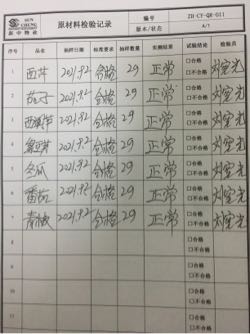 SUN CHENG
新中特波
原材料检验记录
编号 ZD-CY-QR-011
版本/状态 A/1
序号 品名 抽样日期 标准要求 抽样数量 实测结果 试验结论 检验员
1 西芹 2021.9.2 合格 2g 正常 □合格 □不合格
2 茄子 2021.9.2 合格 2g 正常 □合格 □不合格
3 2021.9.2 合格 2g 正常 □合格 □不合格
4 2021.9.2 合格 2g 正常 □合格 □不合格
5 冬瓜 2021.9.2 合格 2g 正常 □合格 □不合格
6 番茄 2021.9.2 合格 2g 正常 □合格 □不合格
7 青椒 2021.9.2 合格 2g 正常 □合格 □不合格
8 □合格 □不合格
9 □合格 □不合格
10 □合格 □不合格
11 □合格 □不合格